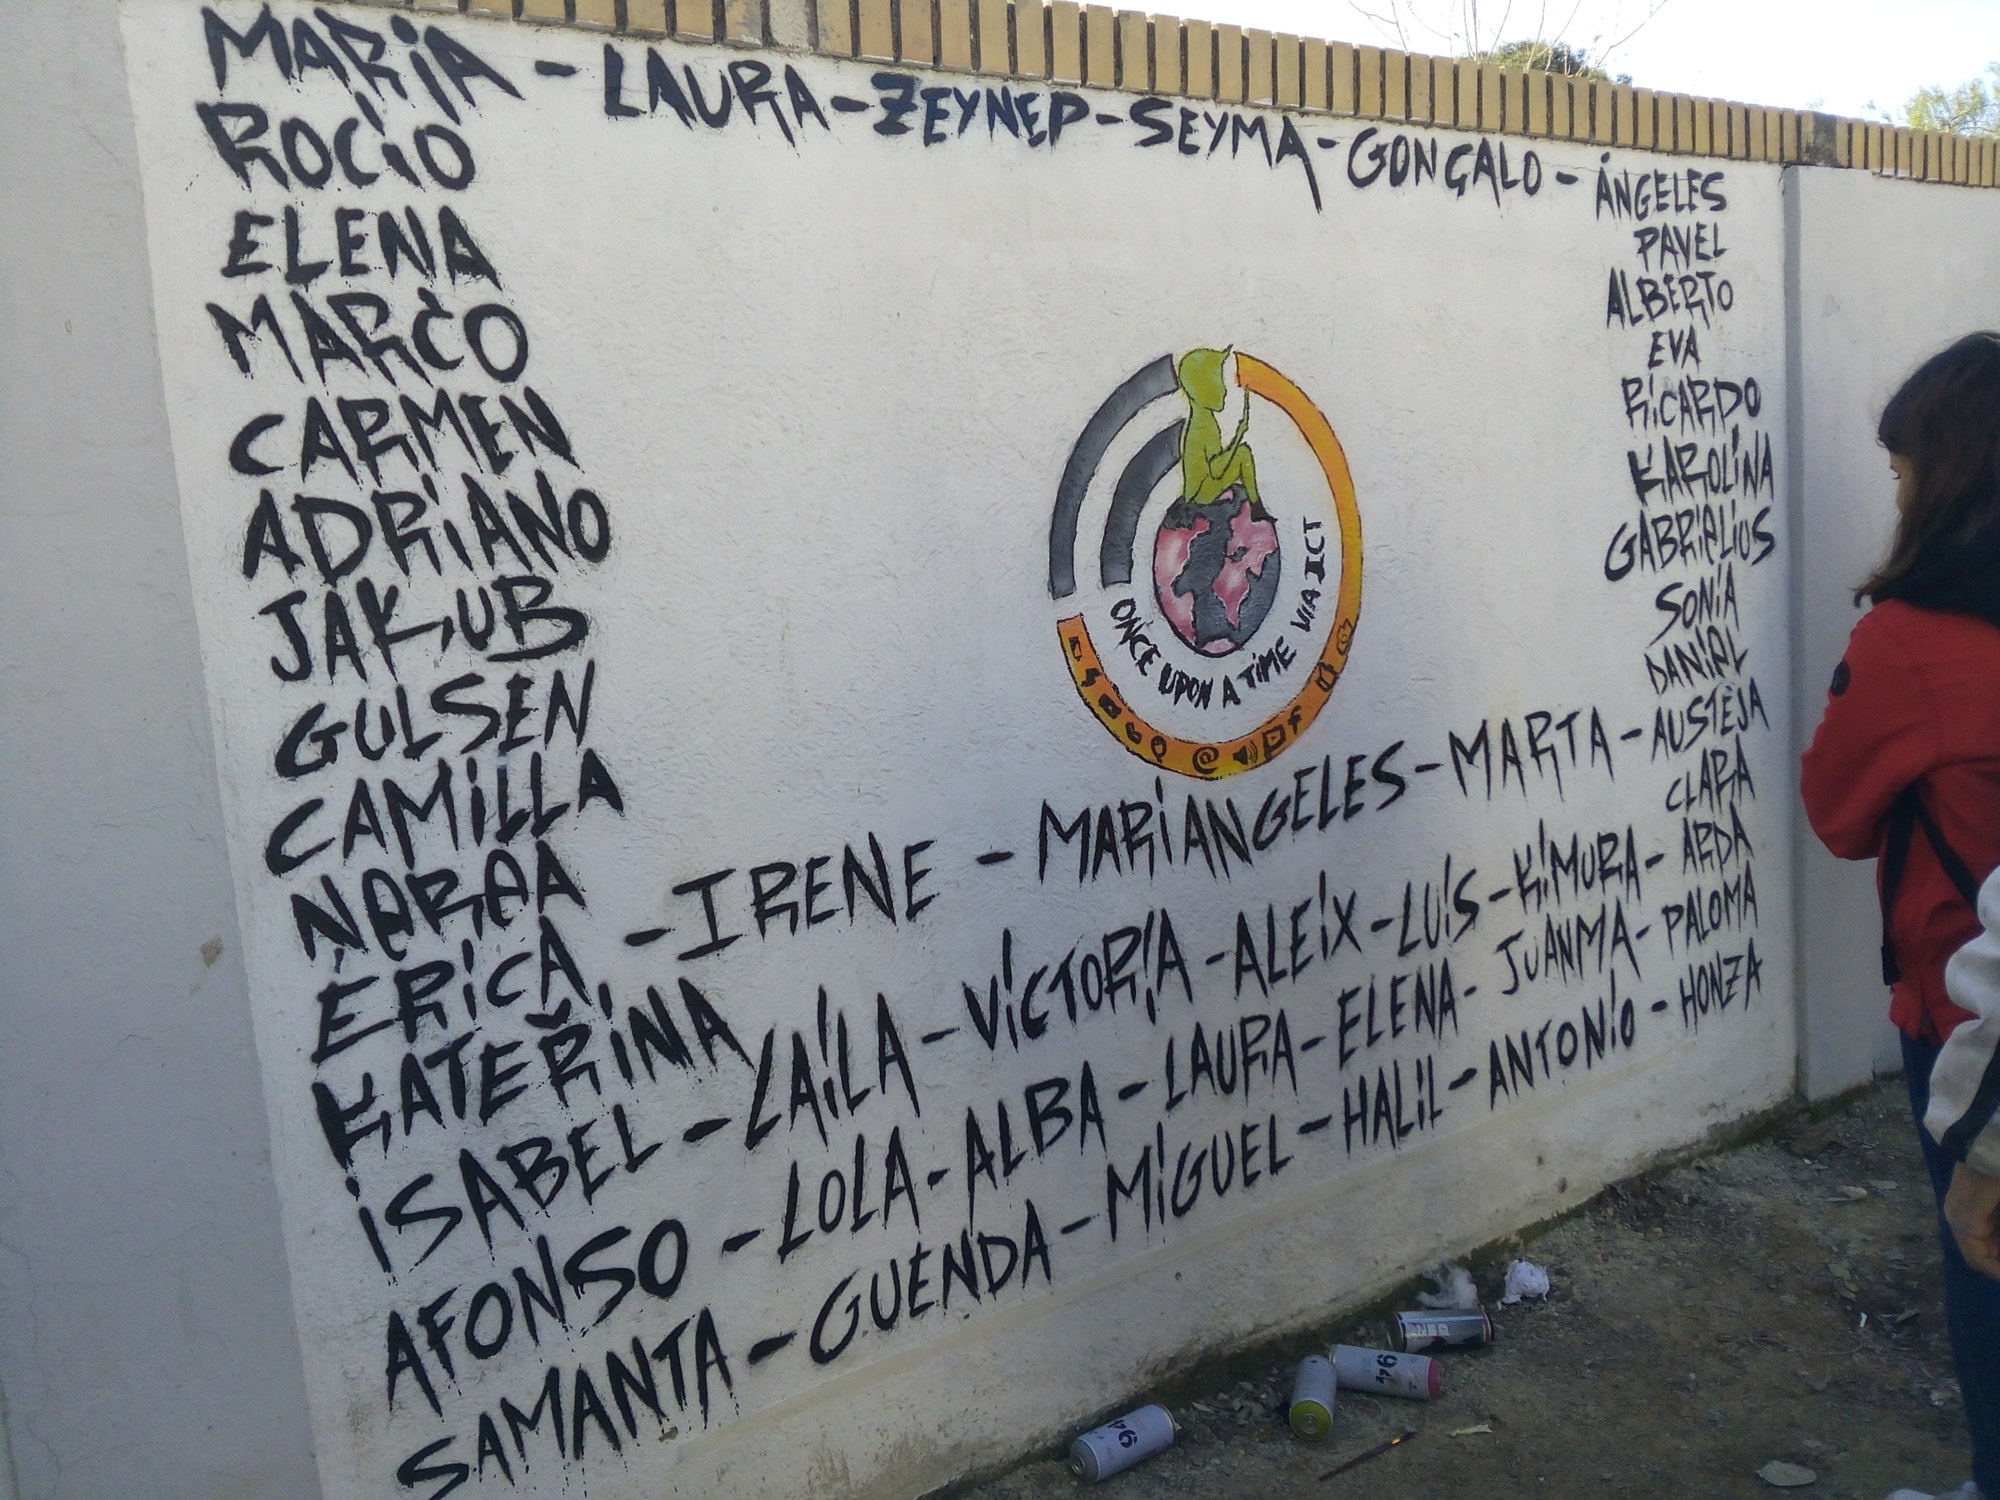 MARÍA - LAURA - ZEYNEP - SEYMA - GONÇALO - ÁNGELES
ROCÍO
ELENA
MARCO
CARMEN
ADRIANO
JAKUB
GULSEN
CAMILLA
NEREA
ÉRICA - IRENE - MARIANGELES - MARTA - AUSTĖJA
KATEŘINA
ISABEL - LAILA - VICTORIA - ALEIX - LUÍS - KIMURA - ARDA
AFONSO - LOLA - ALBA - LAURA - ELENA - JUANMA - PALOMA
SAMANTA - GUENDA - MIGUEL - HALIL - ANTONIO - HONZA
PAVEL
ALBERTO
EVA
RICARDO
KAROLINA
GABRIELIUS
SONIA
DANIEL
CLARA
ONCE UPON A TIME VIA ICT
@
f
176
176